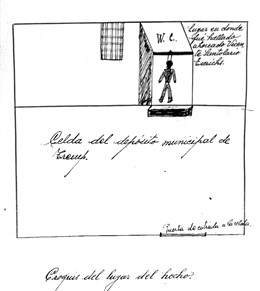 W. C.
Lugar en donde
fué hallado
ahorcado Vicen-
te
Celda del depósito municipal de
Tremp.
Puerta de entrada a la celda.
Croquis del lugar del hecho.